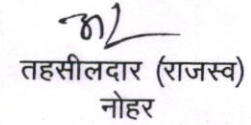 तहसीलदार (राजस्व)
नोहर